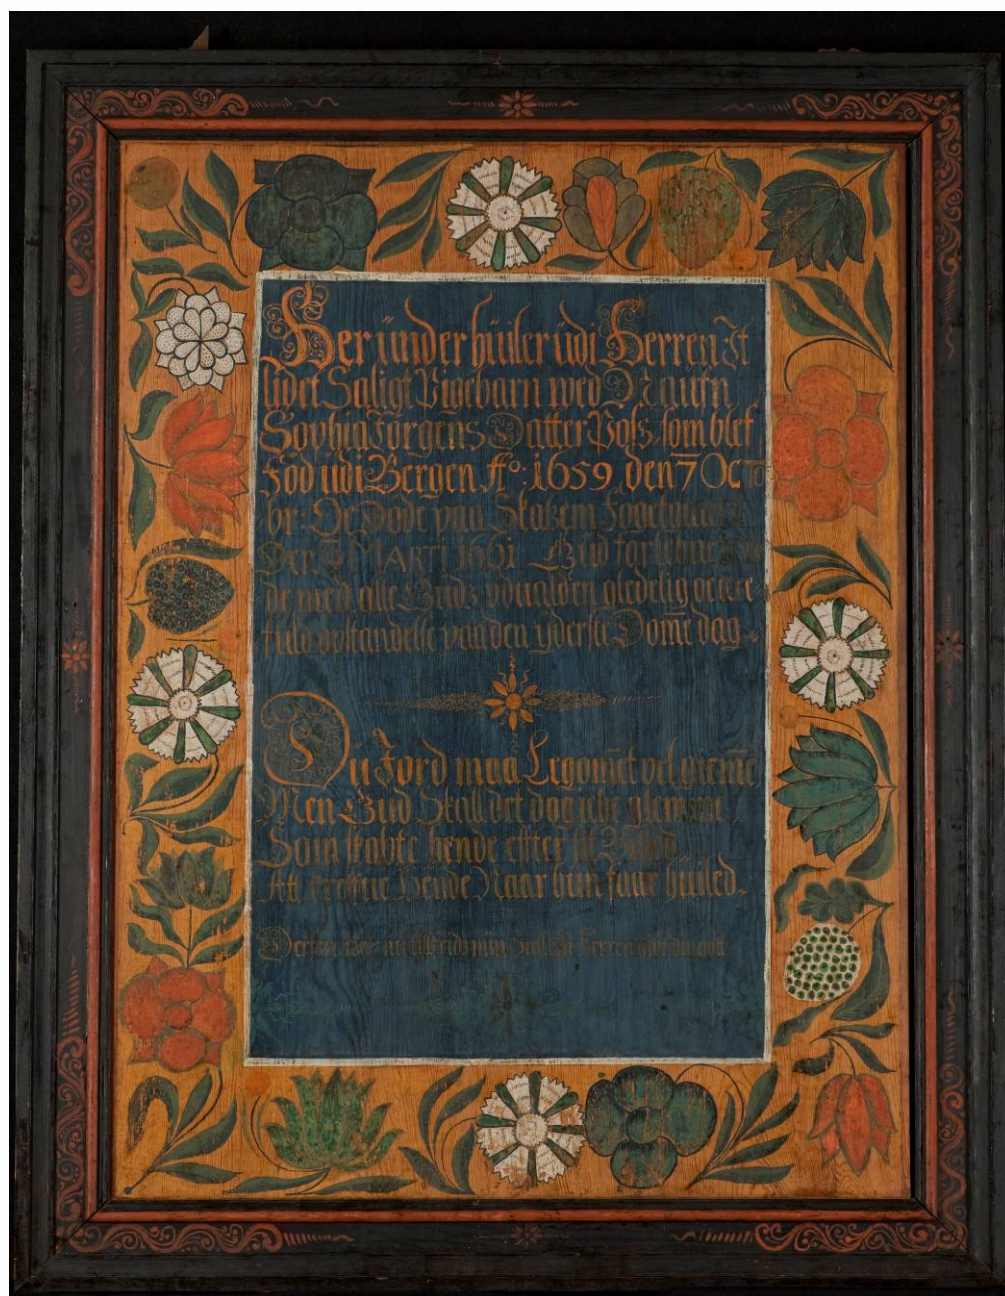 Her ünder hüiler üdi Herren It
lidet Saligt Pigebarn wed Naüfn
Sophia Jørgens Datter Pofs, som blef
Fød üdi Bergen A°: 1659 den 7 Octo
br: Døde paa Skatzem Fogetgaard
Den MARTI 1661 Güd forlehne
de med alle Gudz vdualden glædelig
fuld opstandelse paa den yderste Dome dag
Dü Jord maa Legomet vel gieme
Men Gud Skall det dog icke glemme
Som skabte hende effter sit
At Hende Naar hun faar hüiled.
min Siæl Herren